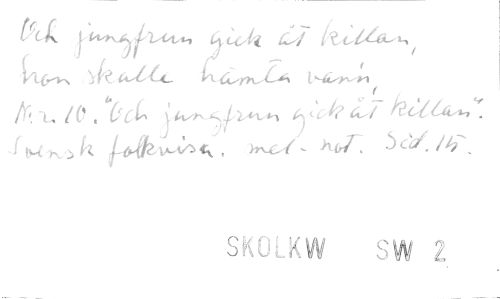 Och jungfrun gick åt killan,
hon skulle hämta vann,
N:r. 10. "Och jungfrun gick åt killan".
Svensk folkvisa. mel- not. Sid. 15.
SKOLKW SW 2